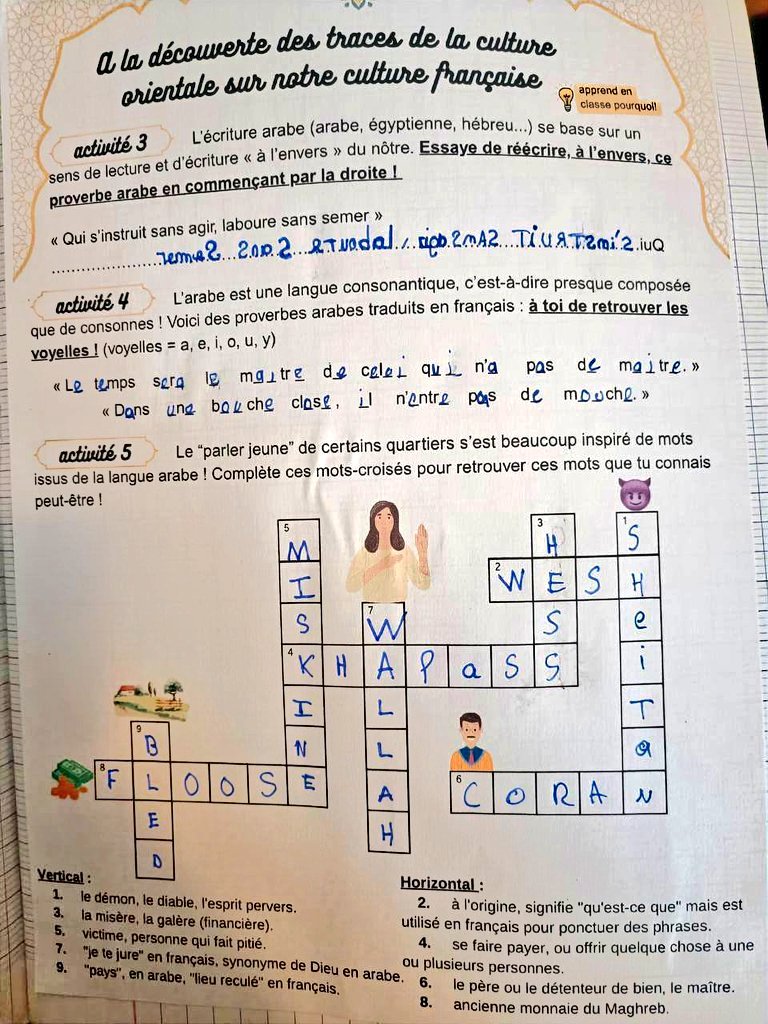 A la découverte des traces de la culture
orientale sur notre culture française
apprend en
classe pourquoi!
activité 3 L'écriture arabe (arabe, égyptienne, hébreu...) se base sur un
sens de lecture et d'écriture « à l'envers » du nôtre. Essaye de réécrire, à l'envers, ce
proverbe arabe en commençant par la droite !
« Qui s'instruit sans agir, laboure sans semer »
.iuQ
activité 4 L'arabe est une langue consonantique, c'est-à-dire presque composée
que de consonnes ! Voici des proverbes arabes traduits en français : à toi de retrouver les
voyelles ! (voyelles = a, e, i, o, u, y)
« Le temps sera le maitre de celei qui n'a pas de maitre. »
« Dans une bouche close, il n'entre pas de mouche. »
activité 5 Le "parler jeune" de certains quartiers s'est beaucoup inspiré de mots
issus de la langue arabe ! Complète ces mots-croisés pour retrouver ces mots que tu connais
peut-être !
5 MISKINE
3 HESS
1 SHeiTaN
2 WESH
7 WALLAH
4 KHAPaSS
9 BLED
8 FLOOSE
6 CORAN
Vertical :
1. le démon, le diable, l'esprit pervers.
3. la misère, la galère (financière).
5. victime, personne qui fait pitié.
7. "je te jure" en français, synonyme de Dieu en arabe.
9. "pays", en arabe, "lieu reculé" en français.
Horizontal :
2. à l'origine, signifie "qu'est-ce que" mais est
utilisé en français pour ponctuer des phrases.
4. se faire payer, ou offrir quelque chose à une
ou plusieurs personnes.
6. le père ou le détenteur de bien, le maître.
8. ancienne monnaie du Maghreb.